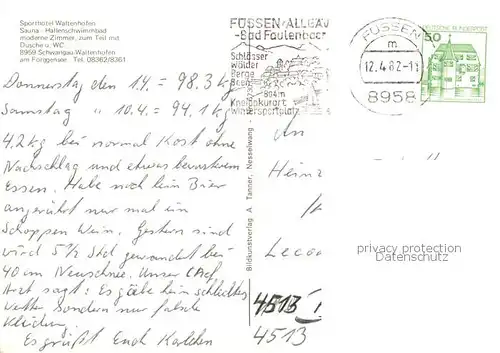 Sporthotel Waltenhofen
Sauna - Hallenschwimmbad
moderne Zimmer, zum Teil mit
Dusche u. WC
8959 Schwangau-Waltenhofen
am Forggensee Tel. 08362/8361
Donnerstag den 1.4. = 98.3 kg
Samstag " 10.4. = 94.1 kg
4.2 kg bei normal Kost ohne
Nachschlag und etwas bewusstem
Essen. Habe noch kein Bier
angerührt nur mal ein
Schoppen Wein. Gestern sind
wird 5½ Std gewandert bei
40 cm Neuschnee. Unser Chef
Arzt sagt: Es gäbe kein schlechtes
Wetter sondern nur falsche
Kleidung.
Es grüßt Euch Karlchen
Bildkunstverlag A. Tanner, Nesselwang
FÜSSEN-ALLGÄU
-Bad Faulenbach
Schlösser
Wälder
Berge
Seen
804m
Kneippkurort
Wintersportplatz
FÜSSEN
m
12.4.82-1
8958
DEUTSCHE BUNDESPOST
50
An
Heinz
privacy protection
Datenschutz
4513
4513